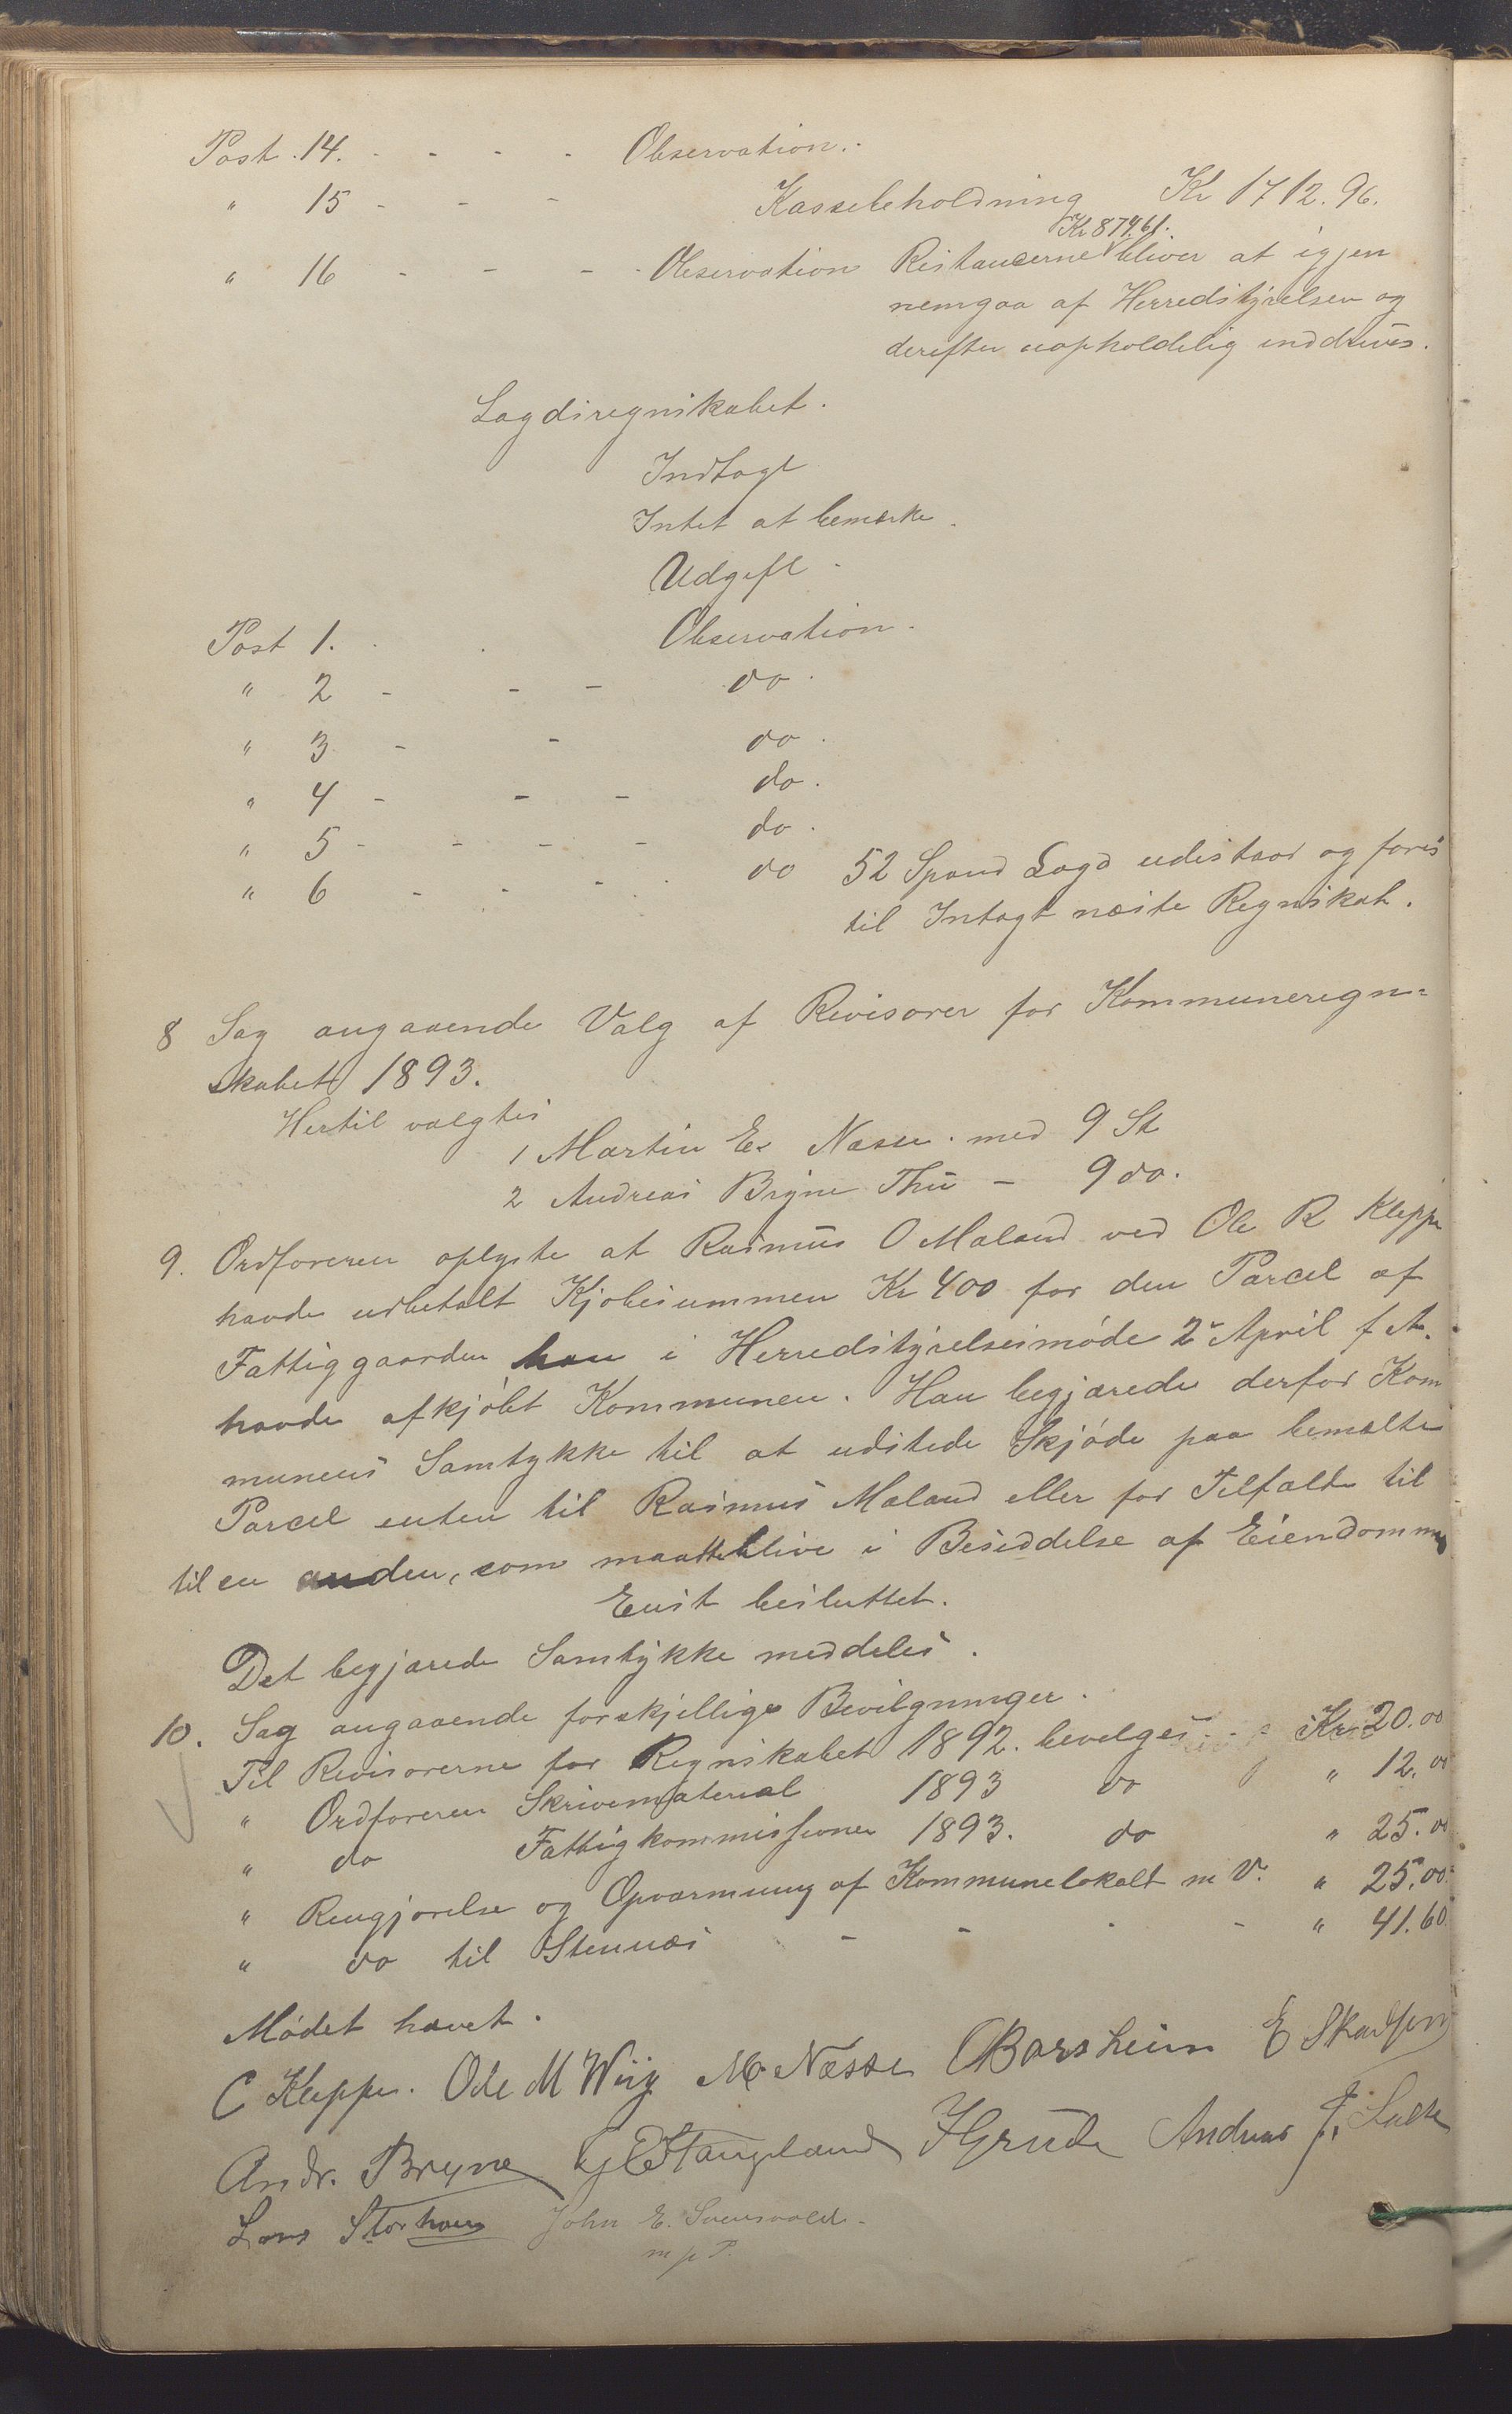 Post. 14. - - - - Observation.
" 15 - - - Kassebeholdning Kr 1712.96.
Kr 874.61.
" 16 - - - - Observation Restancerne bliver at igjen
nemgaa af Herredstyrelsen og
derefter uopholdelig inddrives.
Lagdsregnskabet.
Indtægt
Intet at bemærke.
Udgift
Post 1. . . Observation.
" 2 - - - do.
" 3 - - do.
" 4 - - - do.
" 5 - - - - do.
" 6 - - - . do 52 Spand Lagd udestaar og føres
til Intægt næste Regnskab.
8 Sag angaaende Valg af Revisorer for Kommuneregn=
skabet 1893.
Hertil valgtes
1 Martin E. Næsse. med 9 St
2 Andreas Bryne Thu - 9 do.
9. Ordføreren oplyste at Rasmus O Maland ved Ole R Kleppe
havde udbetalt Kjøbesummen Kr 400 for den Parcel af
Fattiggaarden han i Herredstyrelsesmøde 2 April f. A.
havde afkjøbt Kommunen. Han begjærede derfor Kom
munens Samtykke til at udstede Skjøde paa bemælte
Parcel enten til Rasmus Maland eller for Tilfælde til
til en anden, som maatte blive i Besiddelse af Eiendommen
Enst besluttet.
Det begjærede Samtykke meddeles.
10. Sag angaaende forskjellige Bevilgninger.
Til Revisorerne for Regnskabet 1892. bevilges - - Kr 20.00
" Ordføreren Skrivematerial 1893 do " 12.00
" do Fattigkommissionen 1893. do " 25.00
" Rengjørelse og Opvarmning af Kommunelokalt m V. " 25.00.
" do til Stennæs - - - - " 41.60
Mødet hævet.
C Kleppe. Ole M Wiig M. Næsse Barsheim E Skadsem
Andr. Bryne G E Haugland Grude Andreas J.
Lars Storhaug John E.
m p P.